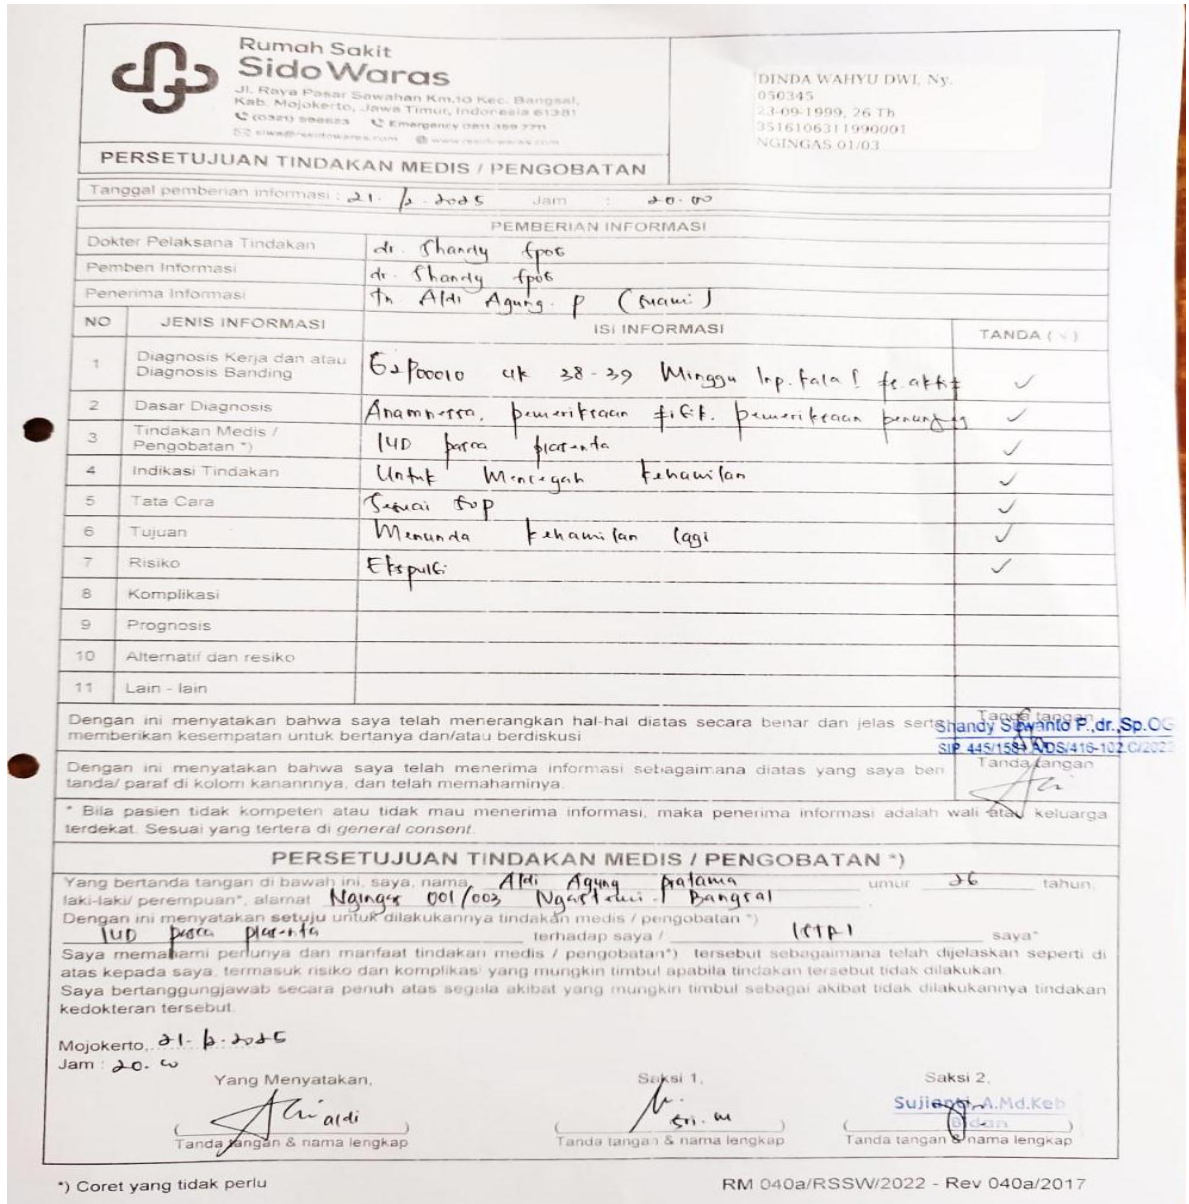 Rumah Sakit
Sido Waras
Jl. Raya Pasar Sawahan Km.10 Kec. Bangsal,
Kab. Mojokerto, Jawa Timur, Indonesia 61381
Emergency 0811 359 7711
DINDA WAHYU DWI, Ny.
050345
23-09-1999, 26 Th
3516106311990001
NGINGAS 01/03
PERSETUJUAN TINDAKAN MEDIS / PENGOBATAN
Tanggal pemberian informasi : 21. 12. 2025 Jam : 20.00
PEMBERIAN INFORMASI
Dokter Pelaksana Tindakan dr. Shandy SpOG
Pemberi Informasi dr. Shandy SpOG
Penerima Informasi tn Aldi Agung. P (suami)
NO JENIS INFORMASI ISI INFORMASI TANDA (√)
1 Diagnosis Kerja dan atau Diagnosis Banding G2P00010 uk 38-39 Minggu Inp. kala I fs. aktif ✓
2 Dasar Diagnosis Anamnessa, pemeriksaan fisik, pemeriksaan penunjang ✓
3 Tindakan Medis / Pengobatan *) IUD pasca plasenta ✓
4 Indikasi Tindakan Untuk Mencegah kehamilan ✓
5 Tata Cara Sesuai SOP ✓
6 Tujuan Menunda kehamilan lagi ✓
7 Risiko Ekspulsi ✓
8 Komplikasi
9 Prognosis
10 Alternatif dan resiko
11 Lain - lain
Dengan ini menyatakan bahwa saya telah menerangkan hal-hal diatas secara benar dan jelas serta
memberikan kesempatan untuk bertanya dan/atau berdiskusi
Tanda tangan
Shandy Siswanto P.,dr.,Sp.OG
Dengan ini menyatakan bahwa saya telah menerima informasi sebagaimana diatas yang saya beri
tanda/ paraf di kolom kanannnya, dan telah memahaminya.
Tanda tangan
* Bila pasien tidak kompeten atau tidak mau menerima informasi, maka penerima informasi adalah wali atau keluarga
terdekat. Sesuai yang tertera di general consent.
PERSETUJUAN TINDAKAN MEDIS / PENGOBATAN *)
Yang bertanda tangan di bawah ini, saya, nama Aldi Agung pratama umur 26 tahun,
laki-laki/ perempuan*, alamat Ngingas 001/003 Bangsal
Dengan ini menyatakan setuju untuk dilakukannya tindakan medis / pengobatan *)
IUD pasca plasenta terhadap saya / istri saya*
Saya memahami perlunya dan manfaat tindakan medis / pengobatan*) tersebut sebagaimana telah dijelaskan seperti di
atas kepada saya, termasuk risiko dan komplikasi yang mungkin timbul apabila tindakan tersebut tidak dilakukan.
Saya bertanggungjawab secara penuh atas segala akibat yang mungkin timbul sebagai akibat tidak dilakukannya tindakan
kedokteran tersebut.
Mojokerto, 21-12-2025
Jam : 20.00
Yang Menyatakan, Saksi 1, Saksi 2,
aldi Sri. M Sujianti, A.Md.Keb
Bidan
Tanda tangan & nama lengkap Tanda tangan & nama lengkap Tanda tangan & nama lengkap
*) Coret yang tidak perlu RM 040a/RSSW/2022 - Rev 040a/2017